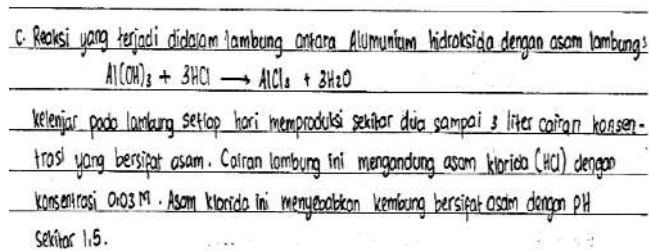 C. Reaksi yang terjadi didalam lambung antara Alumunium hidroksida dengan asam lambung:
Al(OH)3 + 3HCl → AlCl3 + 3H2O
Kelenjar pada lambung setiap hari memproduksi sekitar dua sampai 3 liter cairan konsen-
trasi yang bersifat asam. Cairan lambung ini mengandung asam klorida (HCl) dengan
konsentrasi 0.03 M. Asam klorida ini menyebabkan kembung bersifat asam dengan pH
sekitar 1.5.